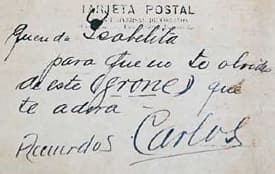 TARJETA POSTAL
Querida Isabelita
para que no te olvide
de este (grone) que
te adora
Recuerdos Carlos